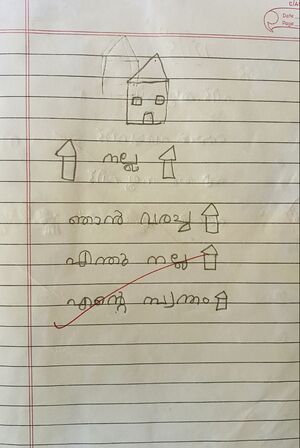 Date
Page
നല്ല
ഞാൻ വരച്ച
എന്തു നല്ല
എന്റെ സ്വന്തം